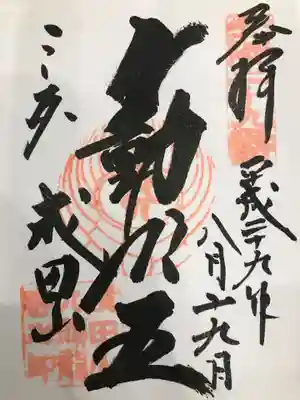 奉拝
平成二十九年
八月十九日
不動明王
成田山